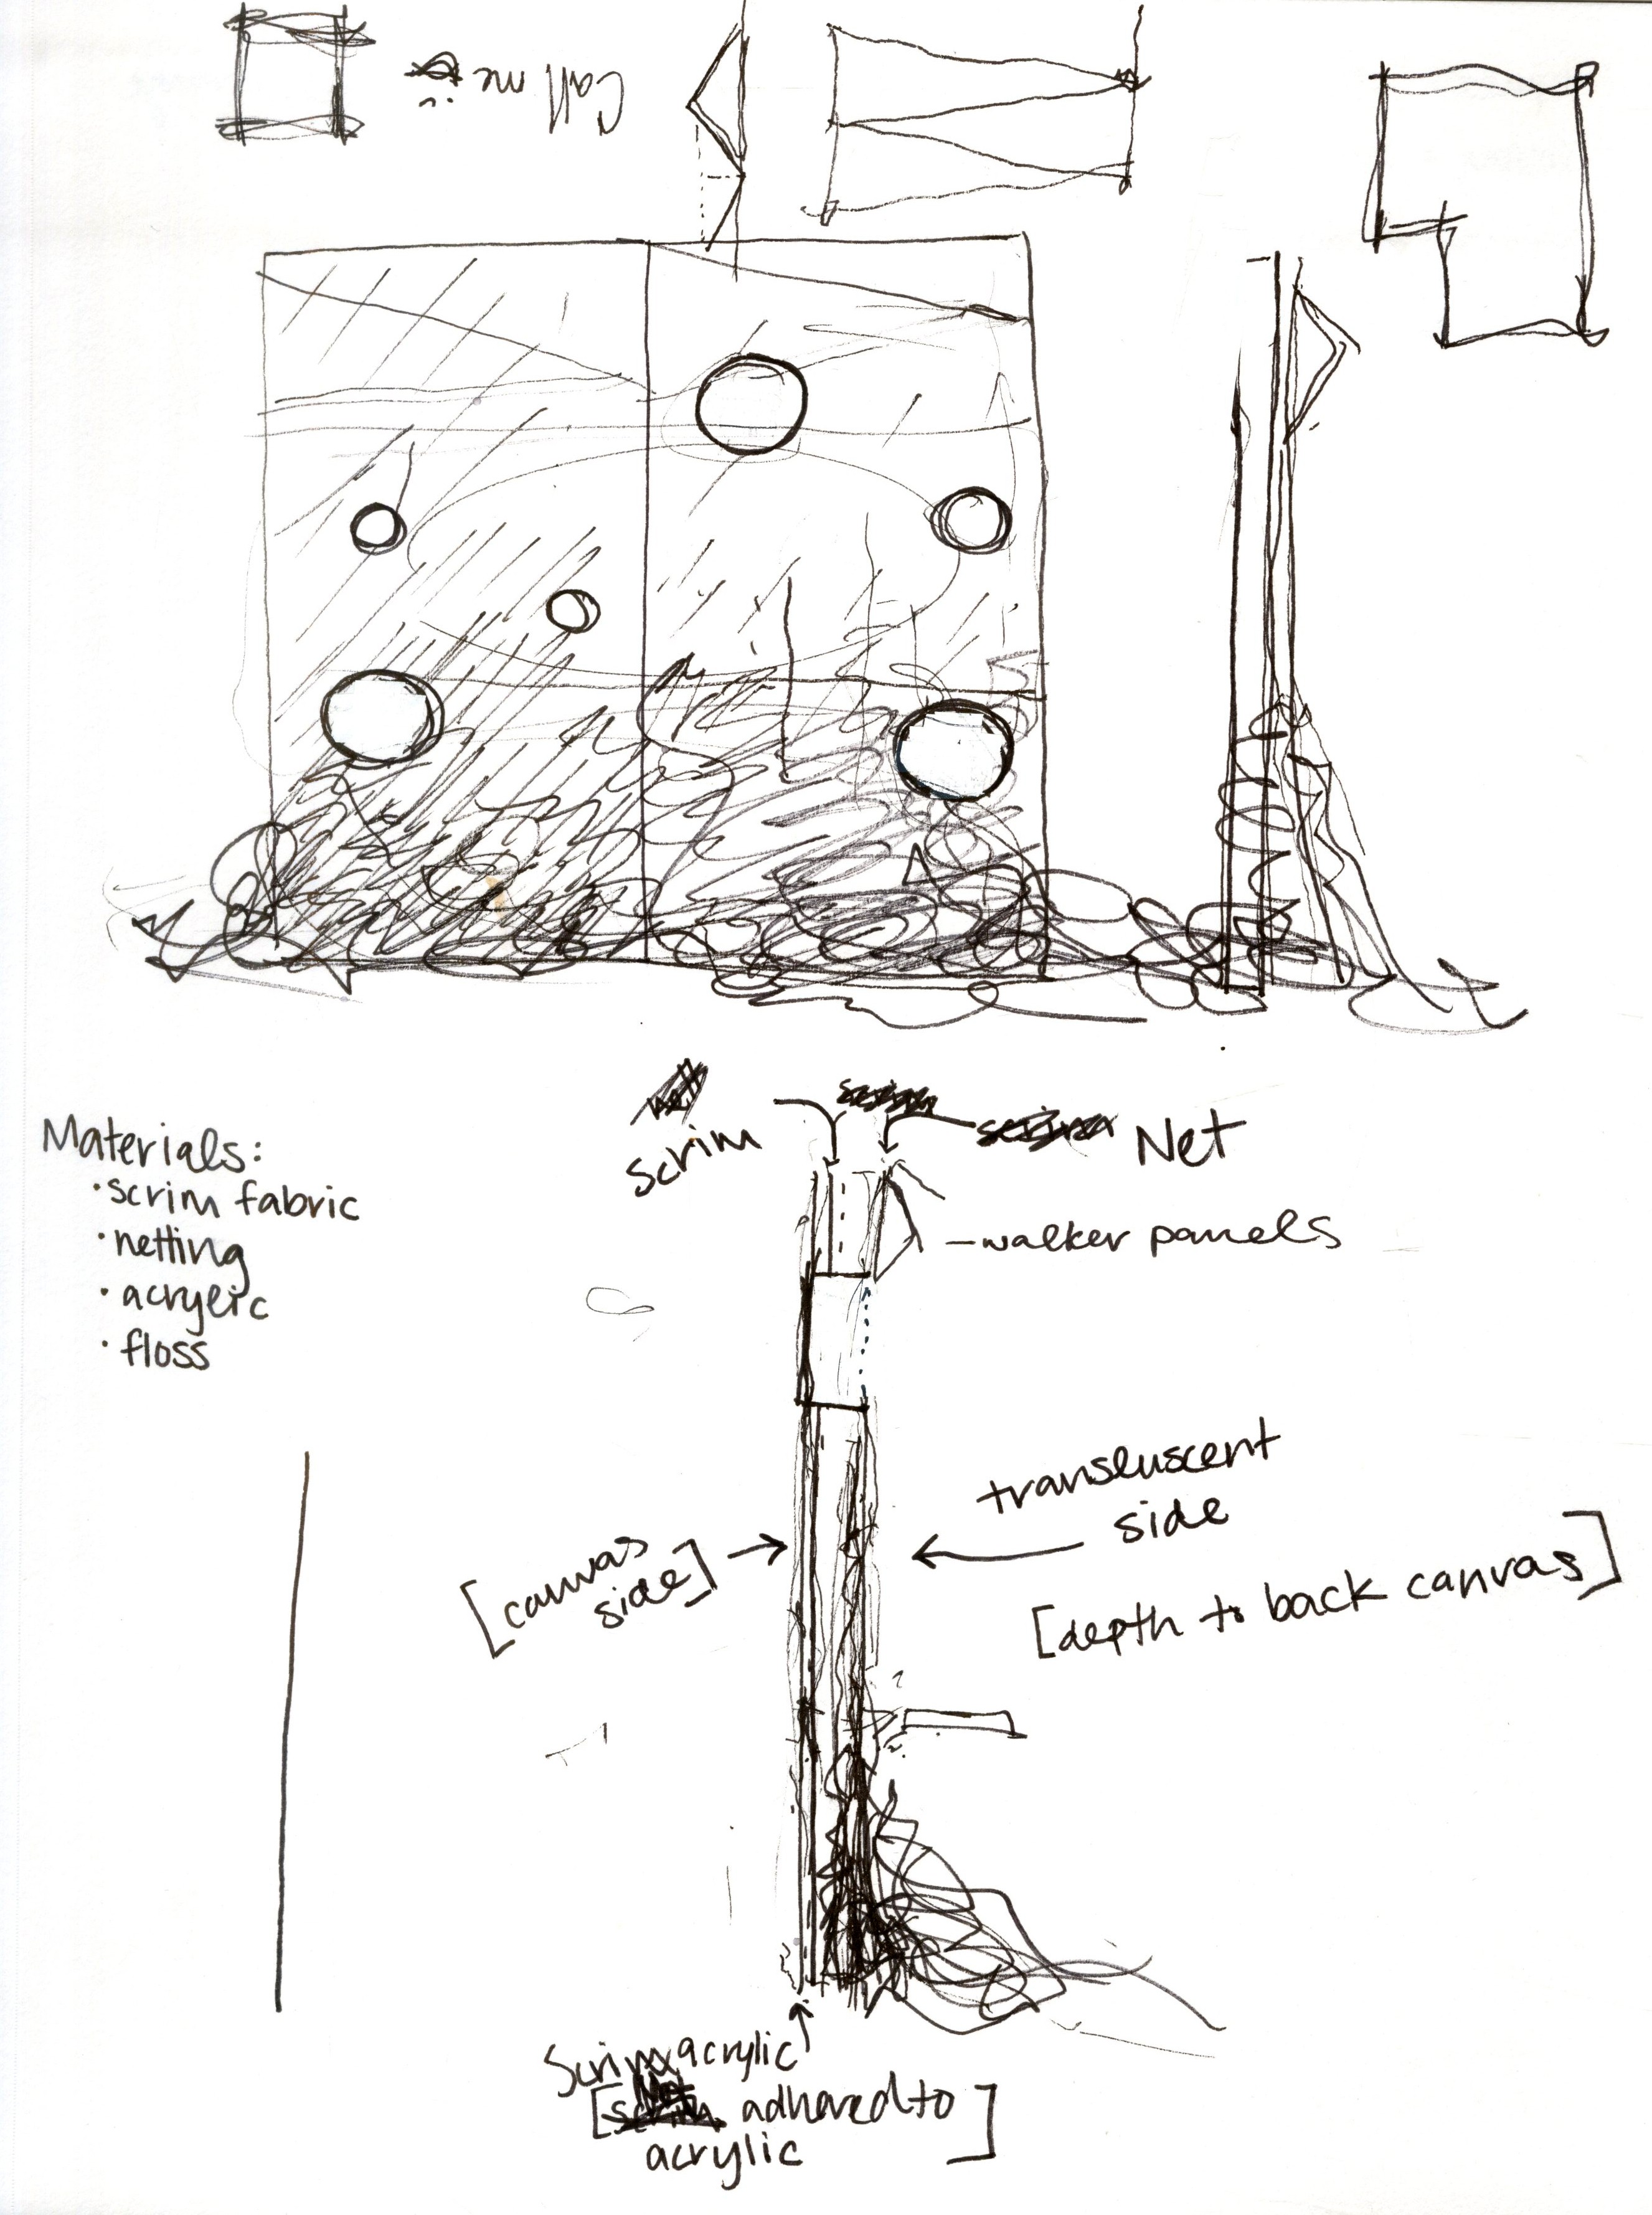 Call me
scrim
Net
Materials:
• scrim fabric
• netting
• acrylic
• floss
– walker panels
transluscent
side
[canvas
side]
[depth to back canvas]
acrylic
[ adhered to
acrylic ]